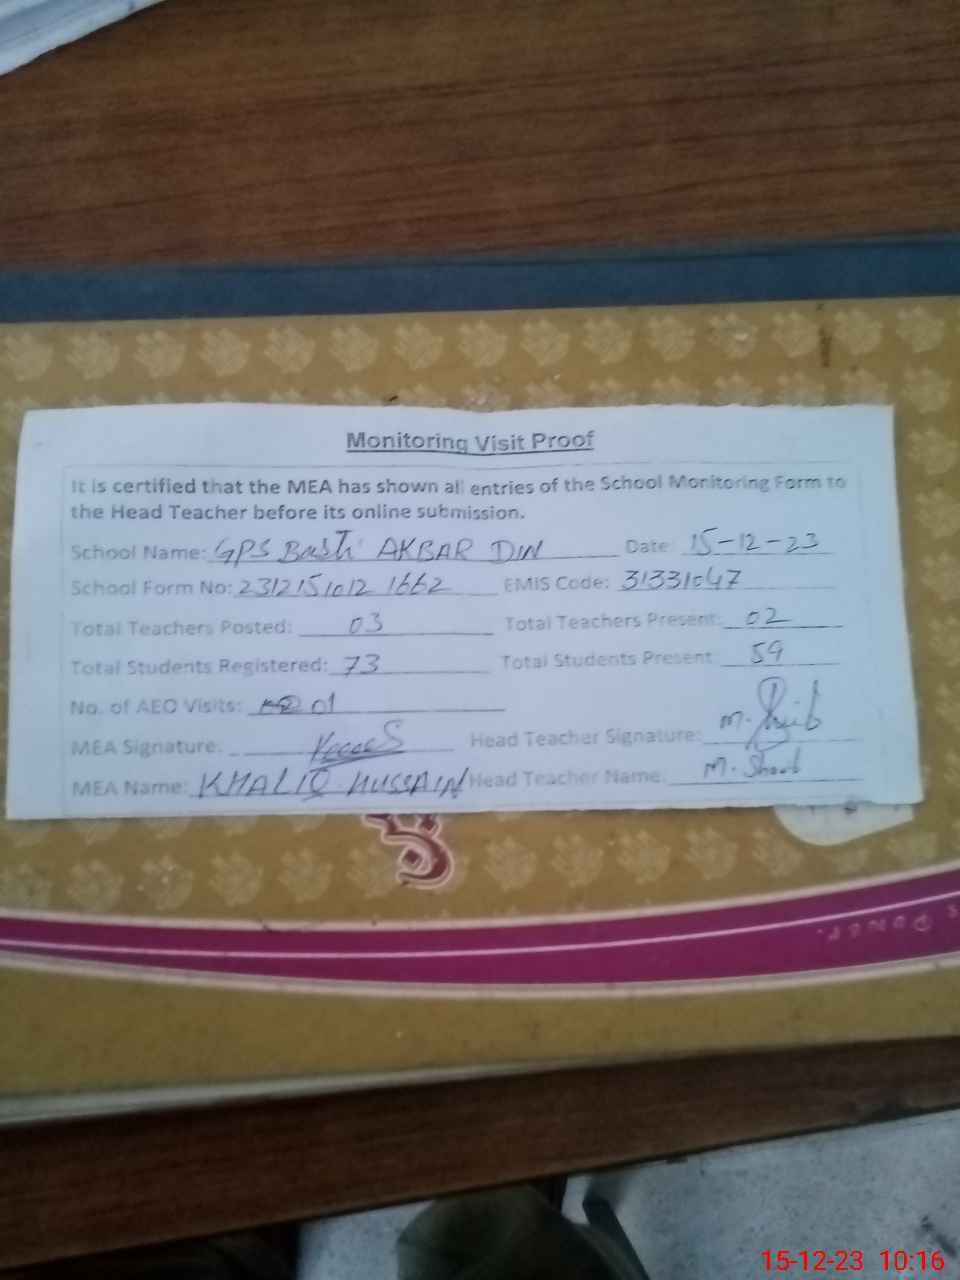 Monitoring Visit Proof
It is certified that the MEA has shown all entries of the School Monitoring Form to
the Head Teacher before its online submission.
School Name: GPS Basti AKBAR DIN Date: 15-12-23
School Form No: 23121510121662 EMIS Code: 31331047
Total Teachers Posted: 03 Total Teachers Present: 02
Total Students Registered: 73 Total Students Present: 59
No. of AEO Visits: 01
MEA Signature: Head Teacher Signature: M.
MEA Name: KHALIQ HUSSAIN Head Teacher Name: M. Shoaib
15-12-23 10:16